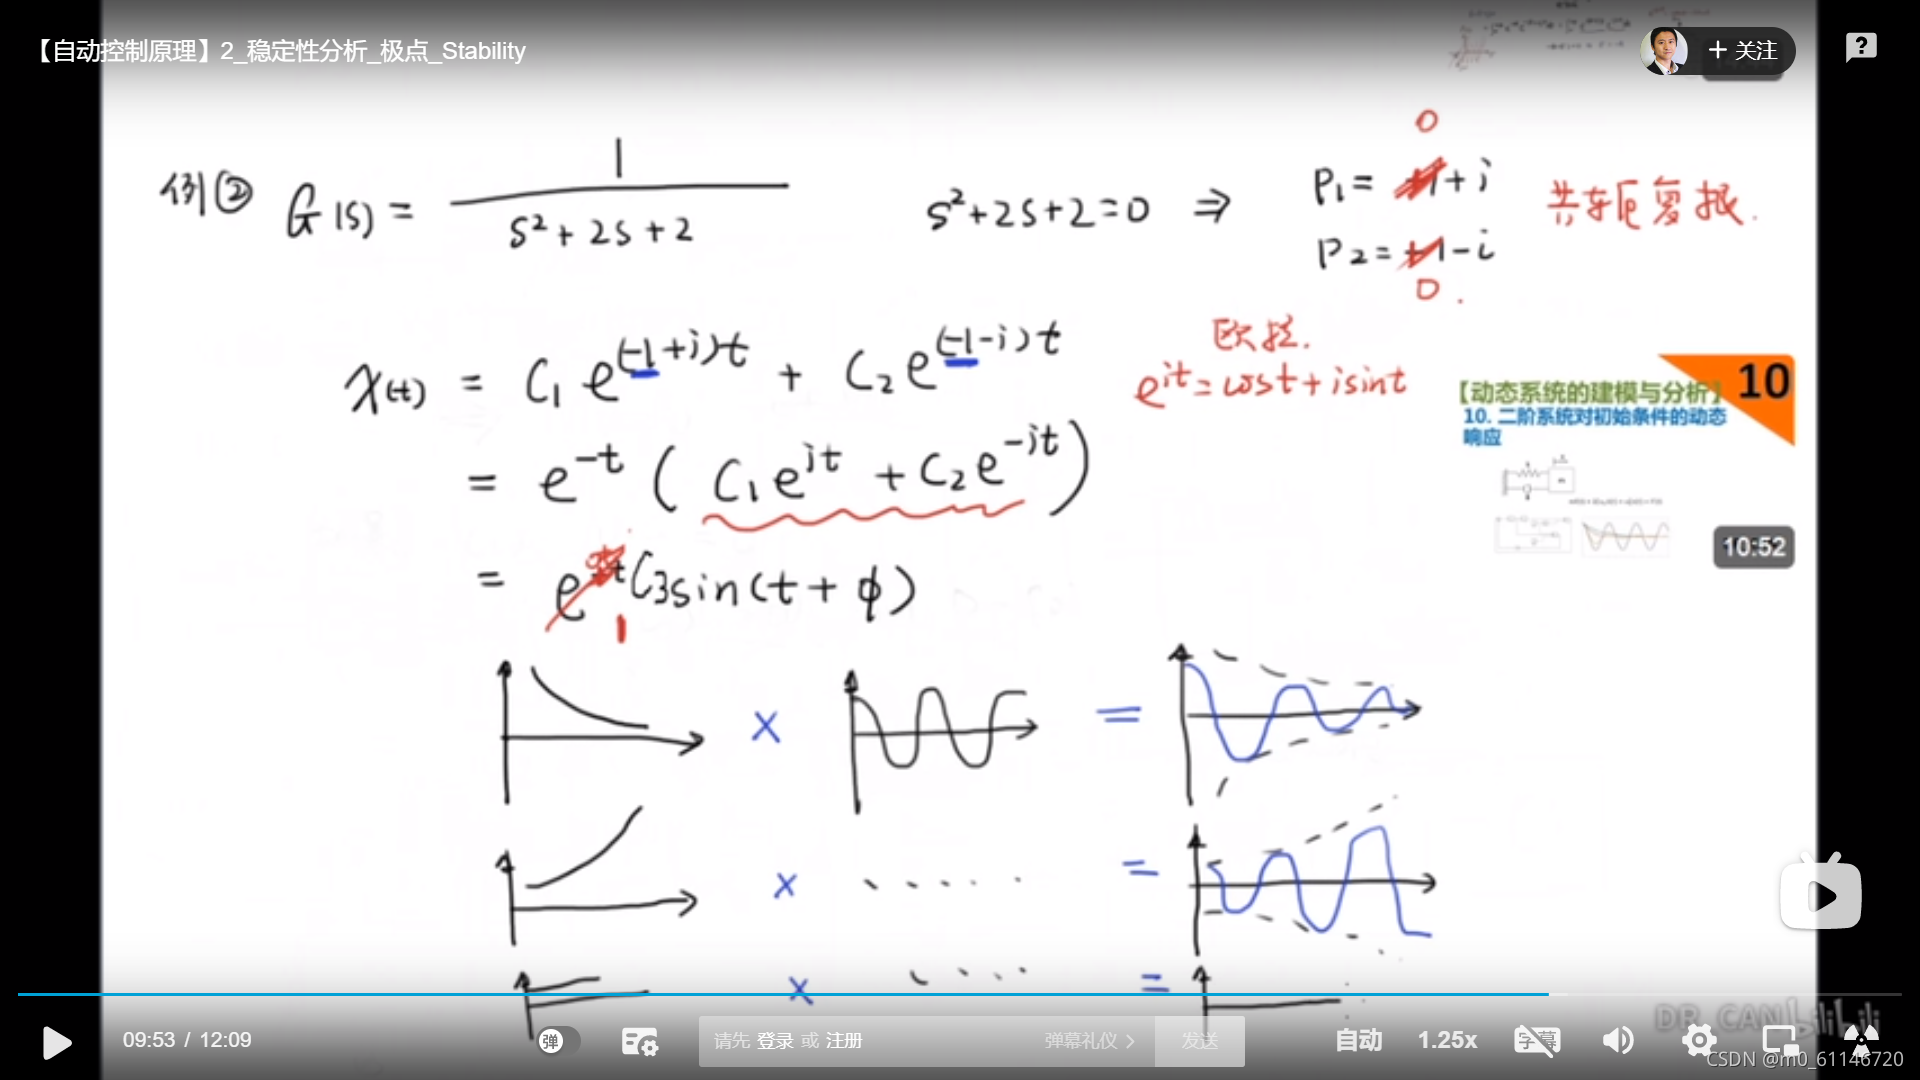 【自动控制原理】2_稳定性分析_极点_Stability
+ 关注
例② G(s) = 1 / s²+2s+2
s²+2s+2=0 ⇒
0
P₁ = +i
P₂ = -i
0
共轭复根.
x(t) = C₁e^(-1+i)t + C₂e^(-1-i)t
欧拉.
e^it = cost + isint
= e^-t (C₁e^it + C₂e^-it)
= e^-t C₃sin(t+ϕ)
1
【动态系统的建模与分析】
10
10. 二阶系统对初始条件的动态
响应
10:52
× =
× =
× =
09:53 / 12:09
弹
请先 登录 或 注册
弹幕礼仪 >
发送
自动
1.25x
字幕
DR_CAN
bilibili
CSDN @m0_61146720